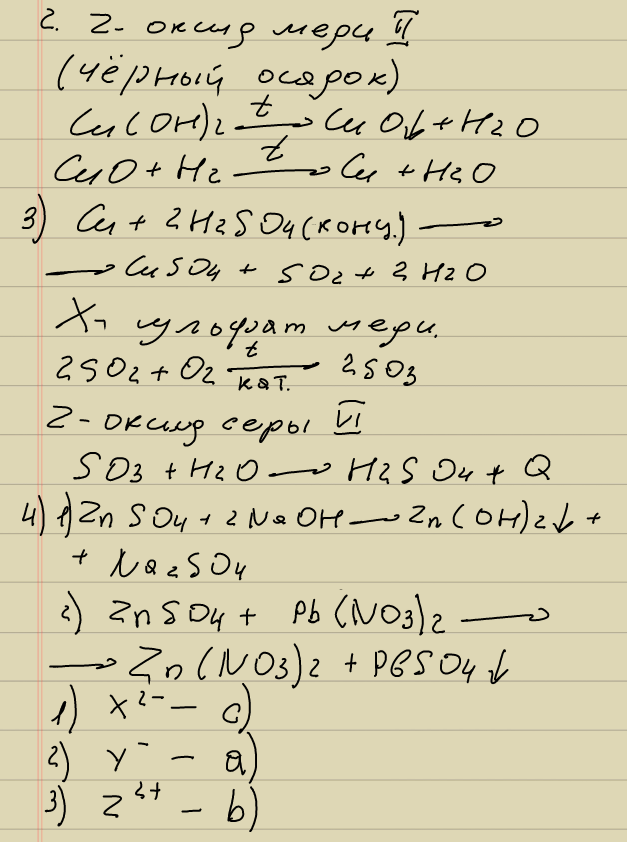 2. Z- оксид меди II
(чёрный осадок)
Cu(OH)2 t→ CuO↓ + H2O
CuO + H2 t→ Cu + H2O
3) Cu + 2H2SO4(конц.) →
→ CuSO4 + SO2 + 2H2O
X- сульфат меди.
2SO2 + O2 t→ кат. 2SO3
Z- оксид серы VI
SO3 + H2O → H2SO4 + Q
4) 1) ZnSO4 + 2NaOH → Zn(OH)2↓ +
+ Na2SO4
2) ZnSO4 + Pb(NO3)2 →
→ Zn(NO3)2 + PbSO4↓
1) X²⁻ – c)
2) Y⁻ – a)
3) Z²⁺ – b)